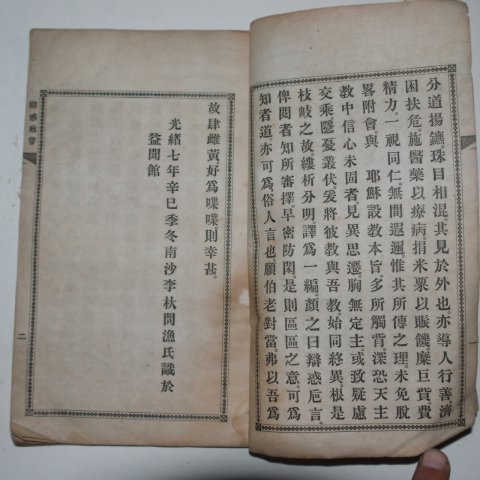 分道揚鑣珠目相混其見於外也亦導人行善濟
困扶危施醫藥以療病捐米粟以賑饑糜巨貲費
精力一視同仁無間遐邇惟其所傳之理未免脫
畧附會與 耶穌設教本旨多所觸背深恐天主
教中信心未固者見異思遷胸無定主或致疑慮
交乘隱憂叢伏爰將彼教與吾教始同終異根是
枝岐之故縷析分明譯為一編顏之曰辯惑卮言
俾閱者知所審擇早密防閑是則區區之意可為
知者道亦可為俗人言也願伯老對當弗以吾為
故肆雌黃好為喋喋則幸甚
光緒七年辛巳季冬南沙李杕問漁氏識於
益聞館
二